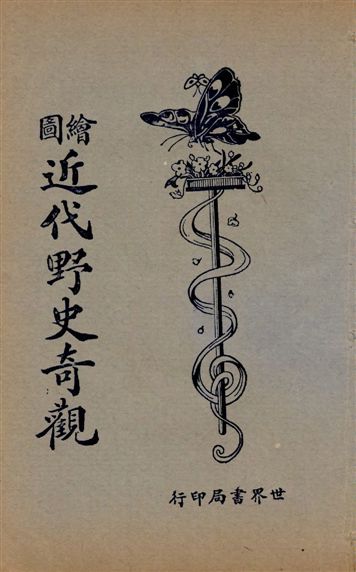 繪圖
近代野史奇觀
世界書局印行